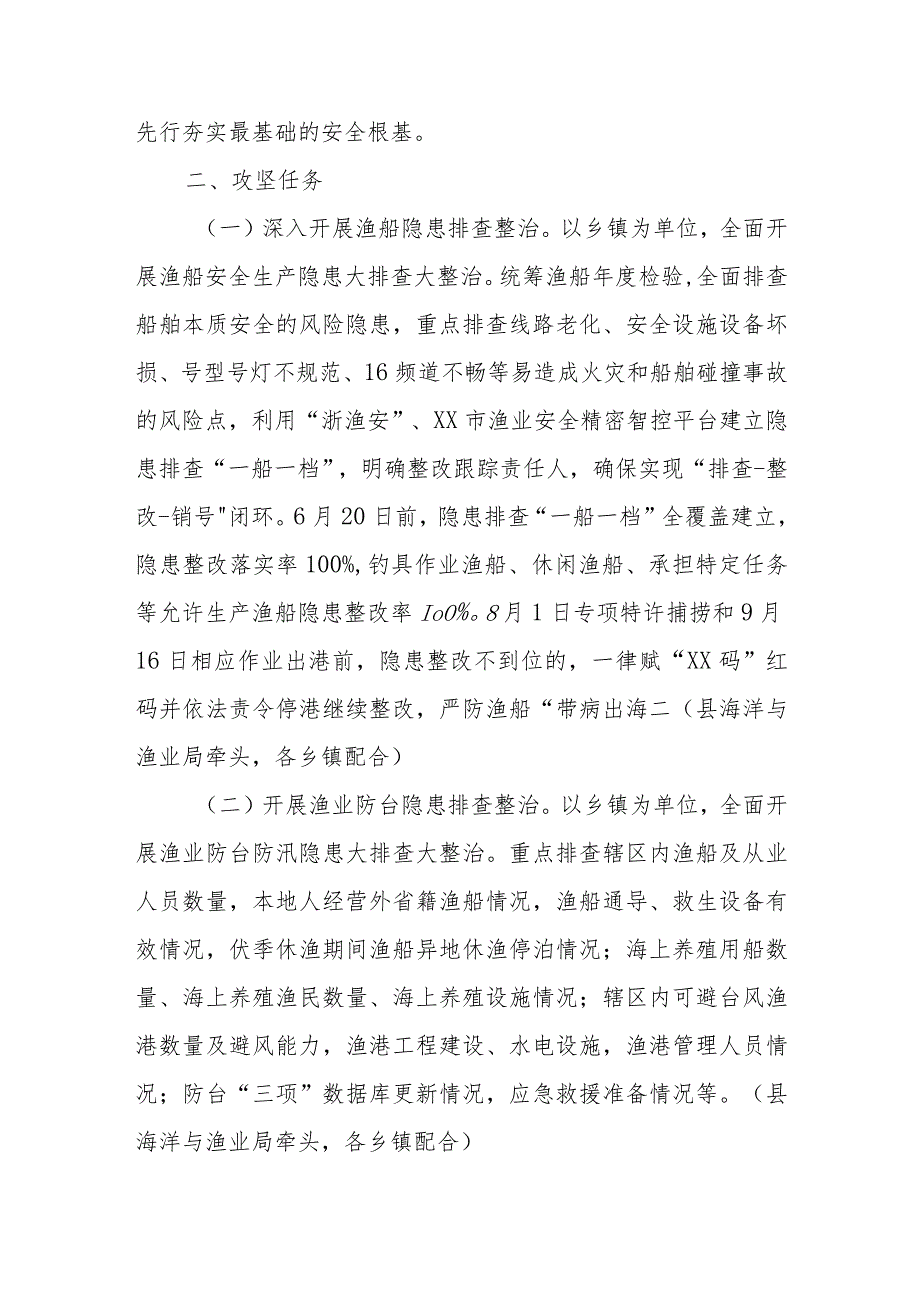 先行夯实最基础的安全根基。
二、攻坚任务
（一）深入开展渔船隐患排查整治。以乡镇为单位，全面开
展渔船安全生产隐患大排查大整治。统筹渔船年度检验,全面排查
船舶本质安全的风险隐患，重点排查线路老化、安全设施设备坏
损、号型号灯不规范、16 频道不畅等易造成火灾和船舶碰撞事故
的风险点，利用“浙渔安”、XX 市渔业安全精密智控平台建立隐
患排查“一船一档”，明确整改跟踪责任人，确保实现“排查-整
改-销号"闭环。6 月 20 日前，隐患排查“一船一档”全覆盖建立，
隐患整改落实率 100%,钓具作业渔船、休闲渔船、承担特定任务
等允许生产渔船隐患整改率 IoO%。8 月 1 日专项特许捕捞和 9 月
16 日相应作业出港前，隐患整改不到位的，一律赋“XX 码”红
码并依法责令停港继续整改，严防渔船“带病出海二（县海洋与
渔业局牵头，各乡镇配合）
（二）开展渔业防台隐患排查整治。以乡镇为单位，全面开
展渔业防台防汛隐患大排查大整治。重点排查辖区内渔船及从业
人员数量，本地人经营外省籍渔船情况，渔船通导、救生设备有
效情况，伏季休渔期间渔船异地休渔停泊情况；海上养殖用船数
量、海上养殖渔民数量、海上养殖设施情况；辖区内可避台风渔
港数量及避风能力，渔港工程建设、水电设施，渔港管理人员情
况；防台“三项”数据库更新情况，应急救援准备情况等。（县
海洋与渔业局牵头，各乡镇配合）